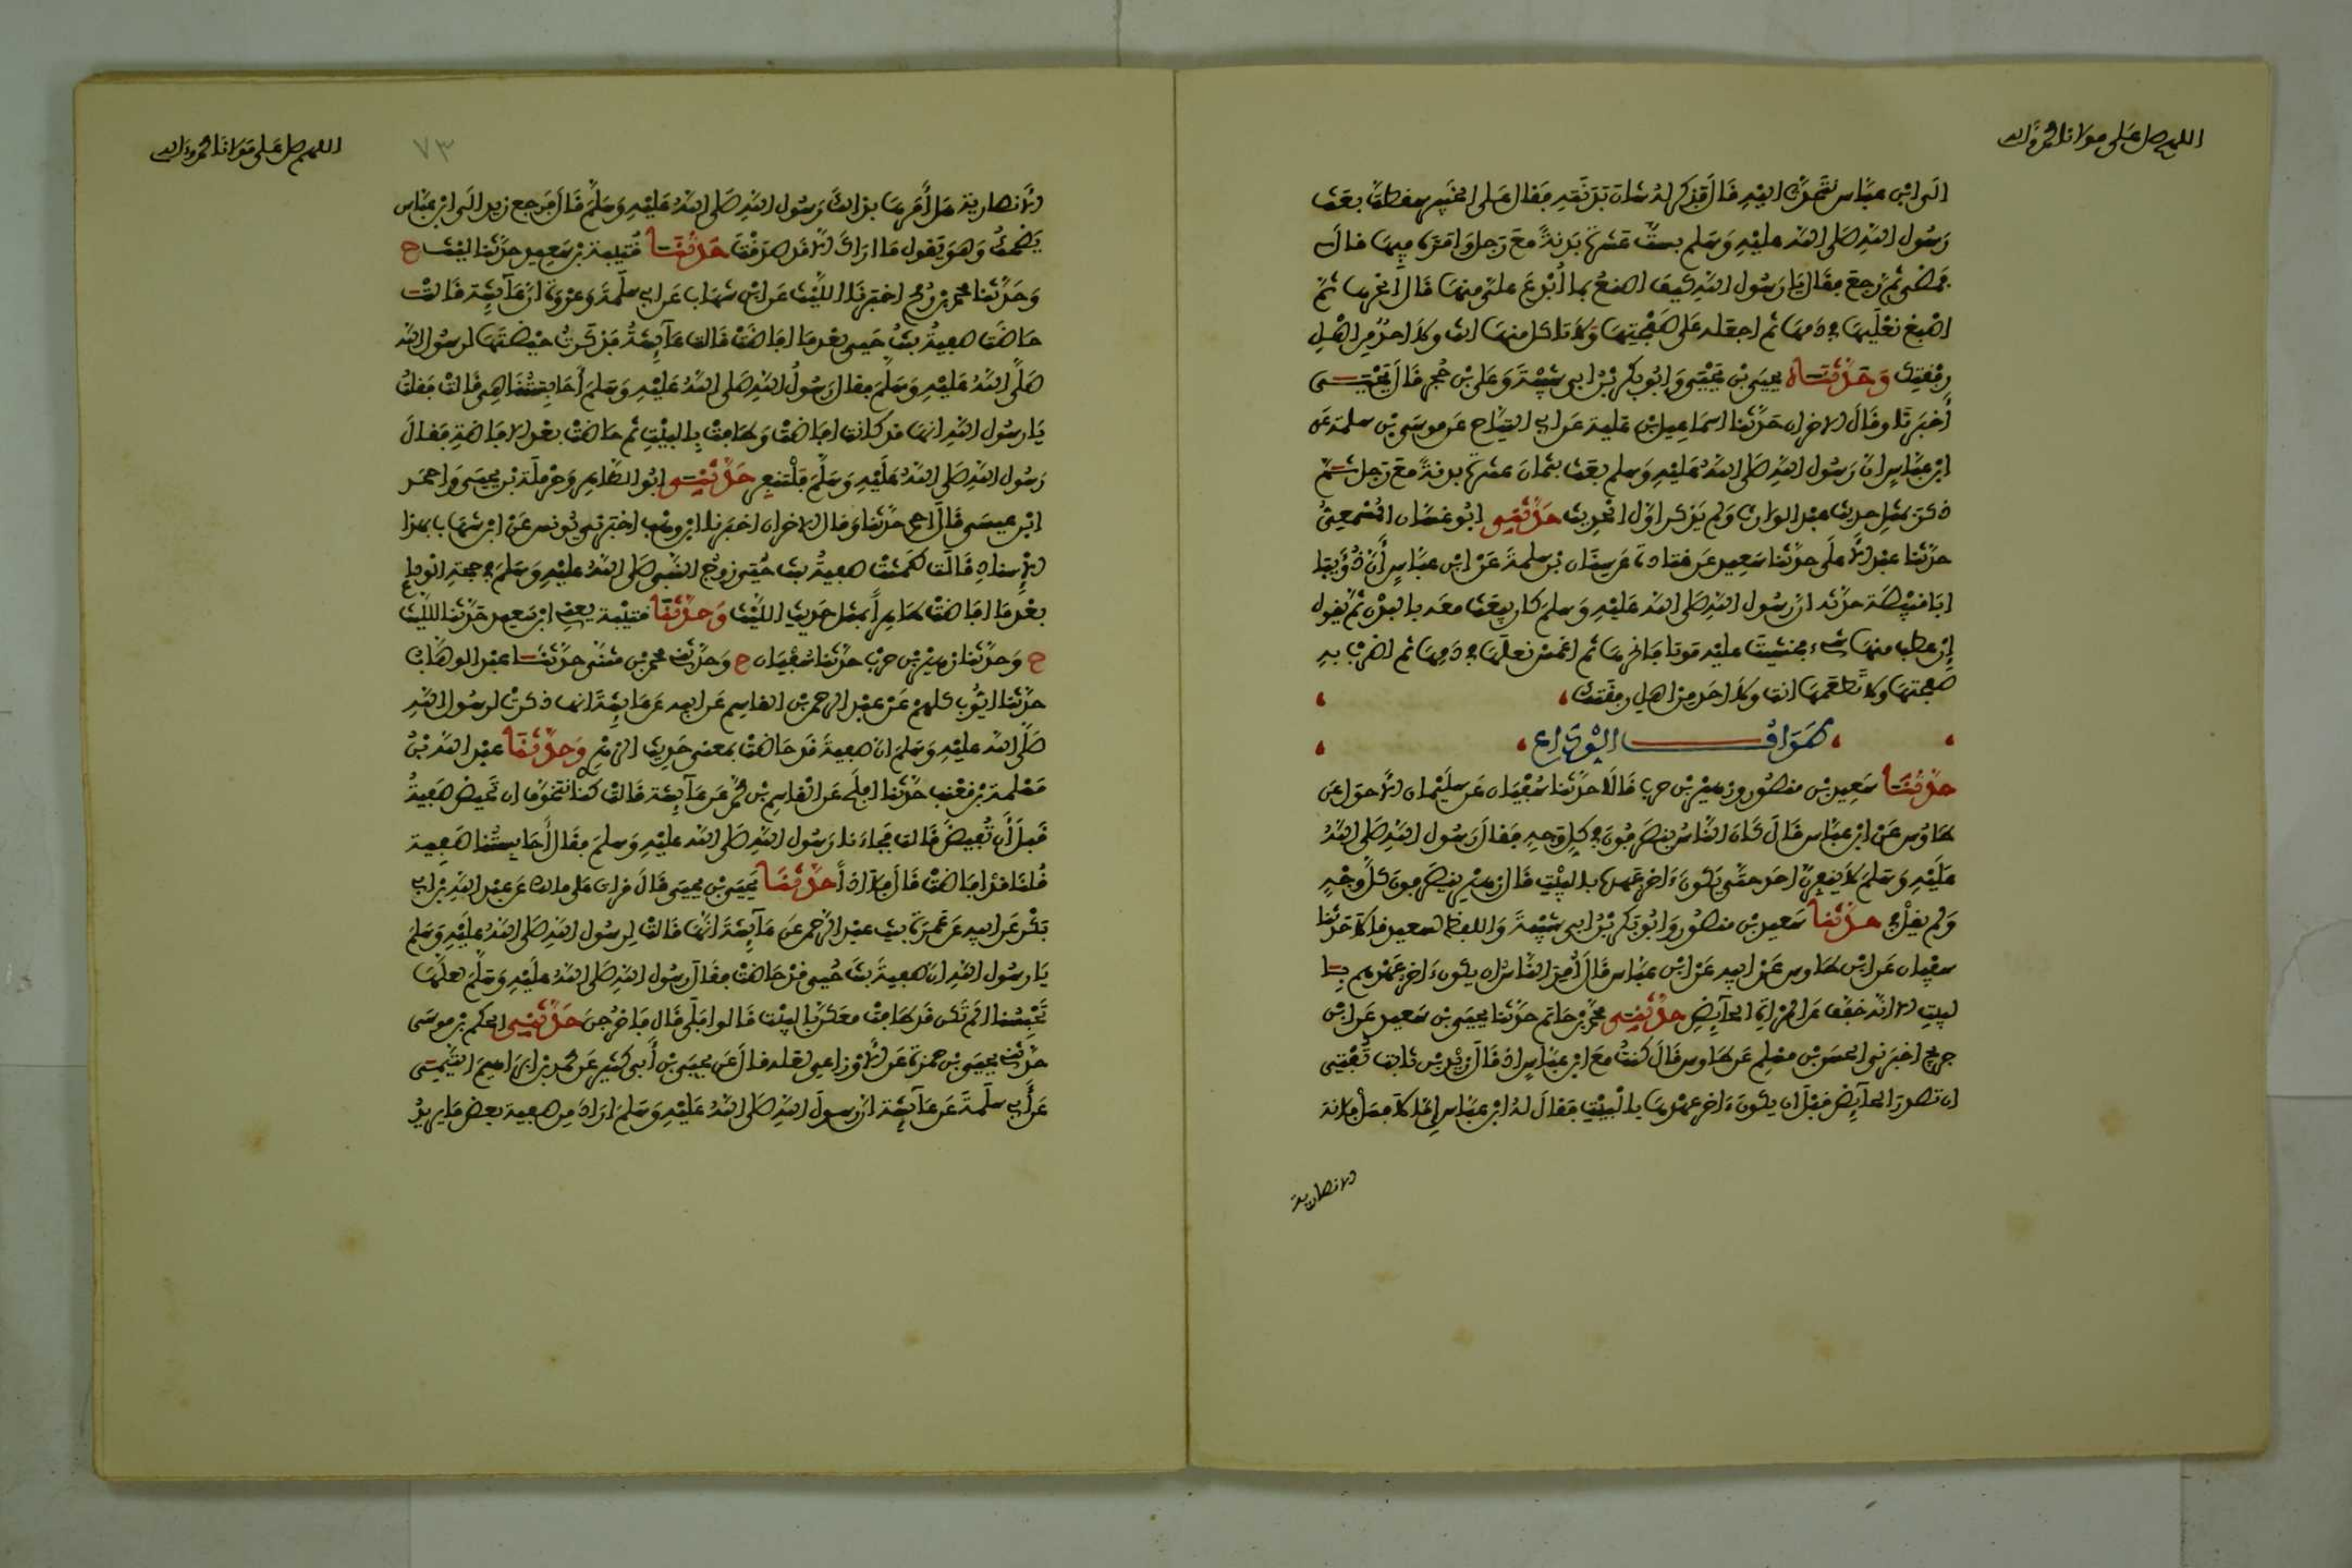 اللهم صل على مولانا محمد وآله
الى ابن عباس نتحدث اليه قال فذكر له شان بدنته فقال على الخبير سقطت بعث
رسول الله صلى الله عليه وسلم بست عشرة بدنة مع رجل وامره فيها قال
فمضى ثم رجع فقال يا رسول الله كيف اصنع بما أبدع علي منها قال انحرها ثم
اصبغ نعليها في دمها ثم اجعله على صفحتها ولا تاكل منها انت ولا احد من اهل
رفقتك وحدثناه يحيى بن يحيى وابو بكر بن ابي شيبة وعلي بن حجر قال يحيى
أخبرنا وقال الاخران حدثنا اسماعيل بن علية عن ابي التياح عن موسى بن سلمة عن
ابن عباس ان رسول الله صلى الله عليه وسلم بعث بثمان عشرة بدنة مع رجل ثم
ذكر بمثل حديث عبد الوارث ولم يذكر اول الحديث حدثني ابو غسان المسمعي
حدثنا عبد الأعلى حدثنا سعيد عن قتادة عن سنان بن سلمة عن ابن عباس أن ذؤيبا
ابا قبيصة حدثه ان رسول الله صلى الله عليه وسلم كان يبعث معه بالبدن ثم يقول
إن عطب منها شيء فخشيت عليه موتا فانحرها ثم اغمس نعلها في دمها ثم اضرب به
صفحتها ولا تطعمها انت ولا احد من اهل رفقتك
طواف الوداع
حدثنا سعيد بن منصور وزهير بن حرب قالا حدثنا سفيان عن سليمان الاحول عن
طاوس عن ابن عباس قال كان الناس ينصرفون في كل وجه فقال رسول الله صلى الله
عليه وسلم لا ينفرن احد حتى يكون ءاخر عهده بالبيت قال زهير ينصرفون كل وجه
ولم يقل في حدثنا سعيد بن منصور وابو بكر بن ابي شيبة واللفظ لسعيد قالا حدثنا
سفيان عن ابن طاوس عن ابيه عن ابن عباس قال أمر الناس ان يكون ءاخر عهدهم با
لبيت الا انه خفف عن المرأة الحآيض حدثني محمد بن حاتم حدثنا يحيى بن سعيد عن ابن
جريج اخبرني الحسن بن مسلم عن طاوس قال كنت مع ابن عباس اذ قال زيد بن ثابت تفتي
ان تصدر الحآيض قبل ان يكون ءاخر عهدها بالبيت فقال له ابن عباس إما لا فسل فلانة
الانصارية
اللهم صل على مولانا محمد وءاله
٧٣
الأنصارية هل أمرها بذالك رسول الله صلى الله عليه وسلم قال فرجع زيد الى ابن عباس
يضحك وهو يقول ما اراك الا قد صدقت حدثنا قتيبة بن سعيد حدثنا ليث ح
وحدثنا محمد بن رمح اخبرنا الليث عن ابن شهاب عن ابي سلمة وعروة ان عآيشة قالت
حاضت صفية بنت حيي بعد ما افاضت قالت عآيشة فذكرت حيضتها لرسول الله
صلى الله عليه وسلم فقال رسول الله صلى الله عليه وسلم أحابستنا هي قالت فقلت
يا رسول الله انها قد كانت افاضت وطافت بالبيت ثم حاضت بعد الافاضة فقال
رسول الله صلى الله عليه وسلم فلتنفر حدثني ابو الطاهر وحرملة بن يحيى واحمد
ابن عيسى قال احمد حدثنا وقال الاخران اخبرنا ابن وهب اخبرني يونس عن ابن شهاب بهذا
الإسناد قالت طمثت صفية بنت حيي زوج النبي صلى الله عليه وسلم في حجة الوداع
بعد ما افاضت طاهرا بمثل حديث الليث وحدثنا قتيبة يعني ابن سعيد حدثنا الليث
ح وحدثنا زهير بن حرب حدثنا سفيان ح وحدثني محمد بن مثنى حدثنا عبد الوهاب
حدثنا ايوب كلهم عن عبد الرحمن بن القاسم عن ابيه عن عايشة انها ذكرت لرسول الله
صلى الله عليه وسلم ان صفية قد حاضت بمعنى حديث الزهري وحدثنا عبد الله بن
مسلمة بن قعنب حدثنا افلح عن القاسم بن محمد عن عآيشة قالت كنا نتخوف ان تحيض صفية
قبل أن تفيض قالت فجاءنا رسول الله صلى الله عليه وسلم فقال أحابستنا صفية
قلنا قد افاضت قال فلا اذا حدثنا يحيى بن يحيى قال قرات على مالك عن عبد الله بن ابي
بكر عن ابيه عن عمرة بنت عبد الرحمن عن عآيشة انها قالت لرسول الله صلى الله عليه وسلم
يا رسول الله ان صفية بنت حيي قد حاضت فقال رسول الله صلى الله عليه وسلم لعلها
تحبسنا الم تكن قد طافت معكن بالبيت قالوا بلى قال فاخرجن حدثني الحكم بن موسى
حدثني يحيى بن حمزة عن الأوزاعي لعله قال عن يحيى بن أبي كثير عن محمد بن ابراهيم التيمي
عن أبي سلمة عن عآيشة ان رسول الله صلى الله عليه وسلم اراد من صفية بعض ما يريد